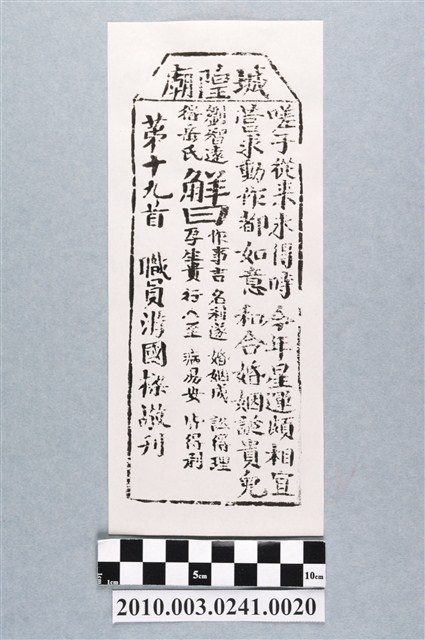 城隍廟
嗟子從来未得時 今年星運頗相宜
营求動作都如意 和合婚姻誕貴兒
劉智遠
得岳氏
解曰
作事吉 名利遂 婚姻成 訟得理
孕生貴 行人至 病易安 占得利
第十九首 職員游國樑敬刊
1cm
5cm
10cm
2010.003.0241.0020